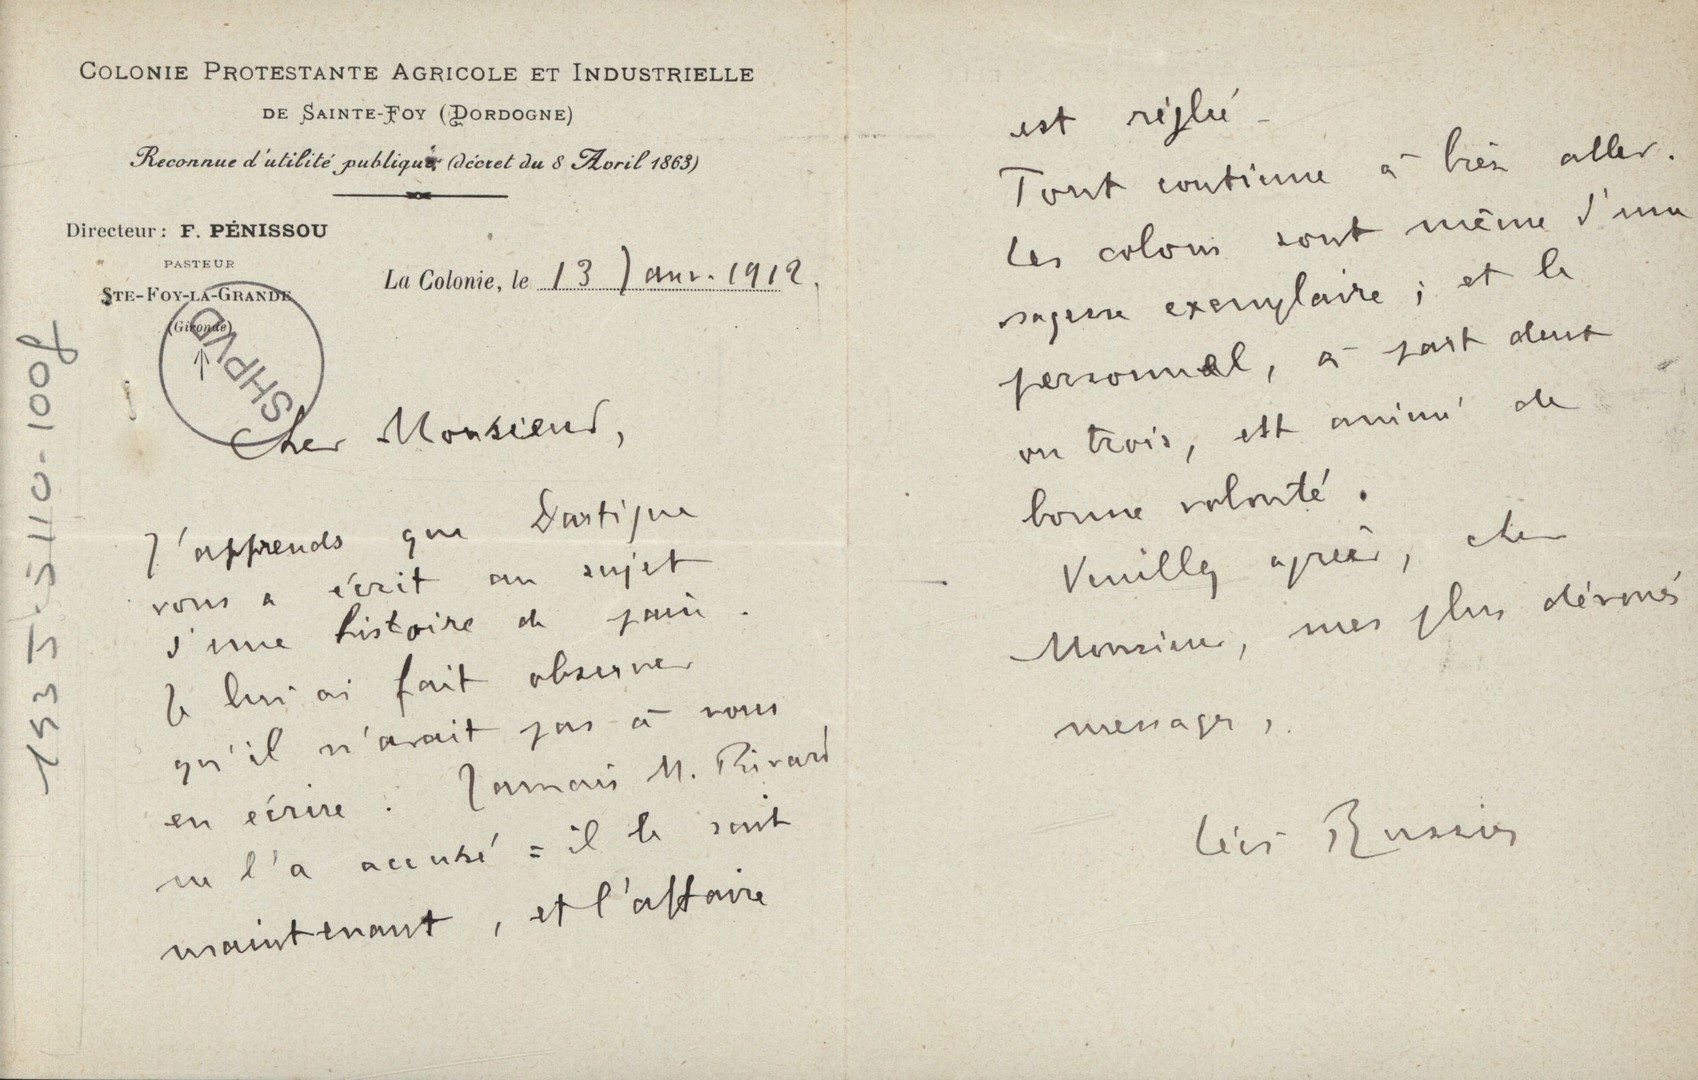 COLONIE PROTESTANTE AGRICOLE ET INDUSTRIELLE
DE SAINTE-FOY (DORDOGNE)
Reconnue d'utilité publique (décret du 8 Avril 1863)
Directeur : F. PÉNISSOU
PASTEUR
STE-FOY-LA-GRANDE
(Gironde)
La Colonie, le 13 Janv. 1912.
SHPVD
153 J 5110-1008
Cher Monsieur,
J'apprends que Dartigue
vous a écrit au sujet
d'une histoire de pain.
Je lui ai fait observer
qu'il n'avait pas à vous
en écrire. Jamais M. Rivard
ne l'a accusé : il le sait
maintenant, et l'affaire
est réglée -
Tout continue à bien aller.
Les colons sont même d'une
sagesse exemplaire ; et le
personnel, à part deux
ou trois, est animé de
bonne volonté.
Veuillez agréer, cher
Monsieur, mes plus dévoués
messages.
Léis Russier